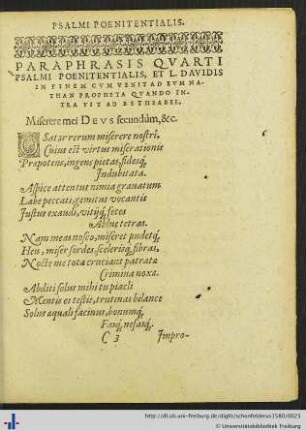 PSALMI POENITENTIALIS.
PARAPHRASIS QVARTI
PSALMI POENITENTIALIS, ET L. DAVIDIS
IN FINEM CVM VENIT AD EVM NA-
THAN PROPHETA QVANDO IN-
TRAVIT AD BETHSABEE,
Miserere mei DEVS secundùm, &c.
Sator rerum miserere nostri,
Cuius est virtus miserationis
Præpotens, ingens pietas, fidesq́;
Indubitata.
Aspice attentus nimia grauatum
Labe peccati, gemitus vocantis
Iustus exaudi, vitijq́; fœces
Ablue tetras.
Nam meas nosco, miseret pudetq́;
Heu, miser sordes, scelerisq́; fibras,
Nocte me tota cruciant patrata
Crimina noxa.
Abditi solus mihi tu piacli
Mentis es testis, trutinas bilance
Solus æquali facinus, bonumq́;
Fasq́;, nefasq́;.
C 3 Impro-
http://dl.ub.uni-freiburg.de/diglit/schonfelderus1580/0023
© Universitätsbibliothek Freiburg